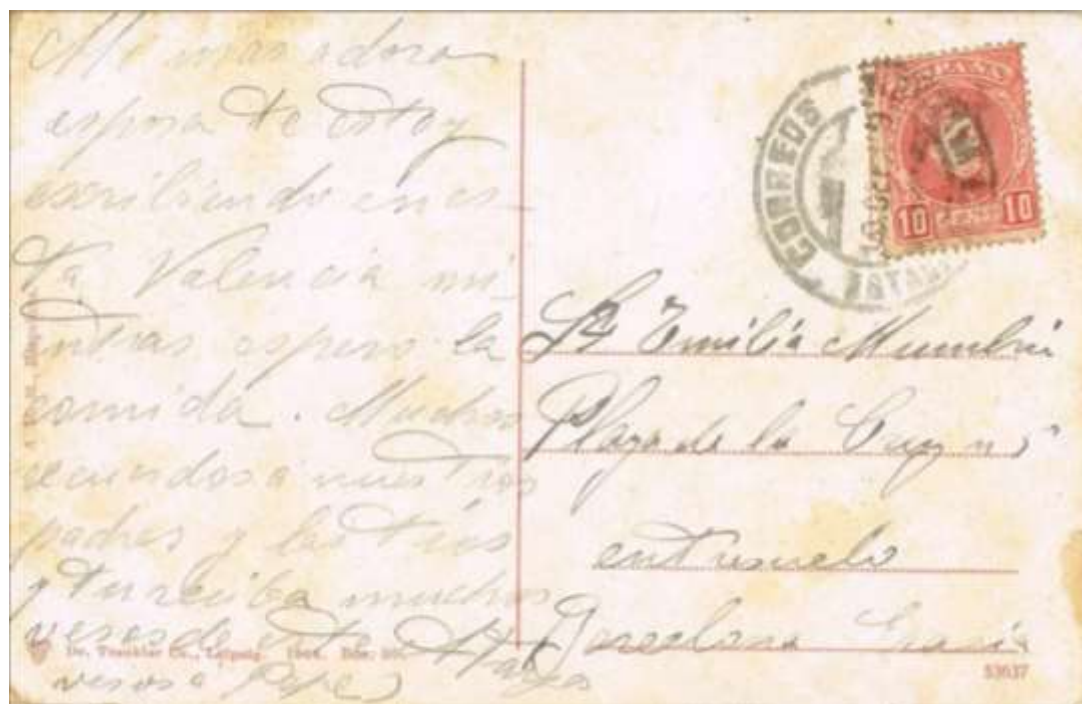 Mi mas adora
esposa te estoy
escribiendo en es-
ta Valencia mi-
entras espero la
comida. Muchos
recuerdos a nuestros
padres y las tias
y tu reciba muchos
vesos de este
vesos a Pepe
CORREOS
ESPAÑA
10 CENTS 10
Sra Emilia
Plaza de la Cruz nº 5
entresuelo
Barcelona Gracia
Dr. Trenkler Co., Leipzig.
53637